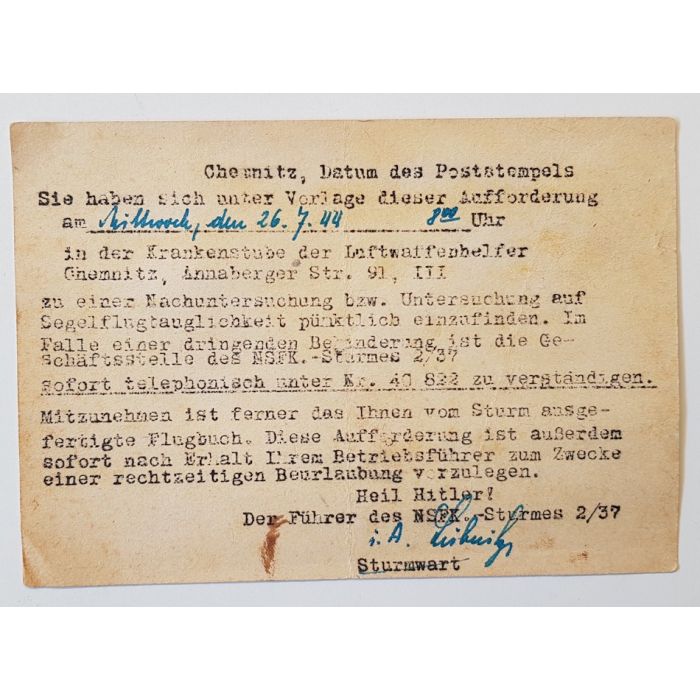 Chemnitz, Datum des Poststempels
Sie haben sich unter Vorlage dieser Aufforderung
am Mittwoch, den 26.7.44 8⁰⁰ Uhr
in der Krankenstube der Luftwaffenhelfer
Chemnitz, Annaberger Str. 91, III
zu einer Nachuntersuchung bzw. Untersuchung auf
Segelflugtauglichkeit pünktlich einzufinden. Im
Falle einer dringenden Behinderung ist die Ge-
schäftsstelle des NSFK.-Sturmes 2/37
sofort telephonisch unter Nr. 40 822 zu verständigen.
Mitzunehmen ist ferner das Ihnen vom Sturm ausge-
fertigte Flugbuch. Diese Aufforderung ist außerdem
sofort nach Erhalt Ihrem Betriebsführer zum Zwecke
einer rechtzeitigen Beurlaubung vorzulegen.
Heil Hitler!
Der Führer des NSFK.-Sturmes 2/37
i. A.
Sturmwart